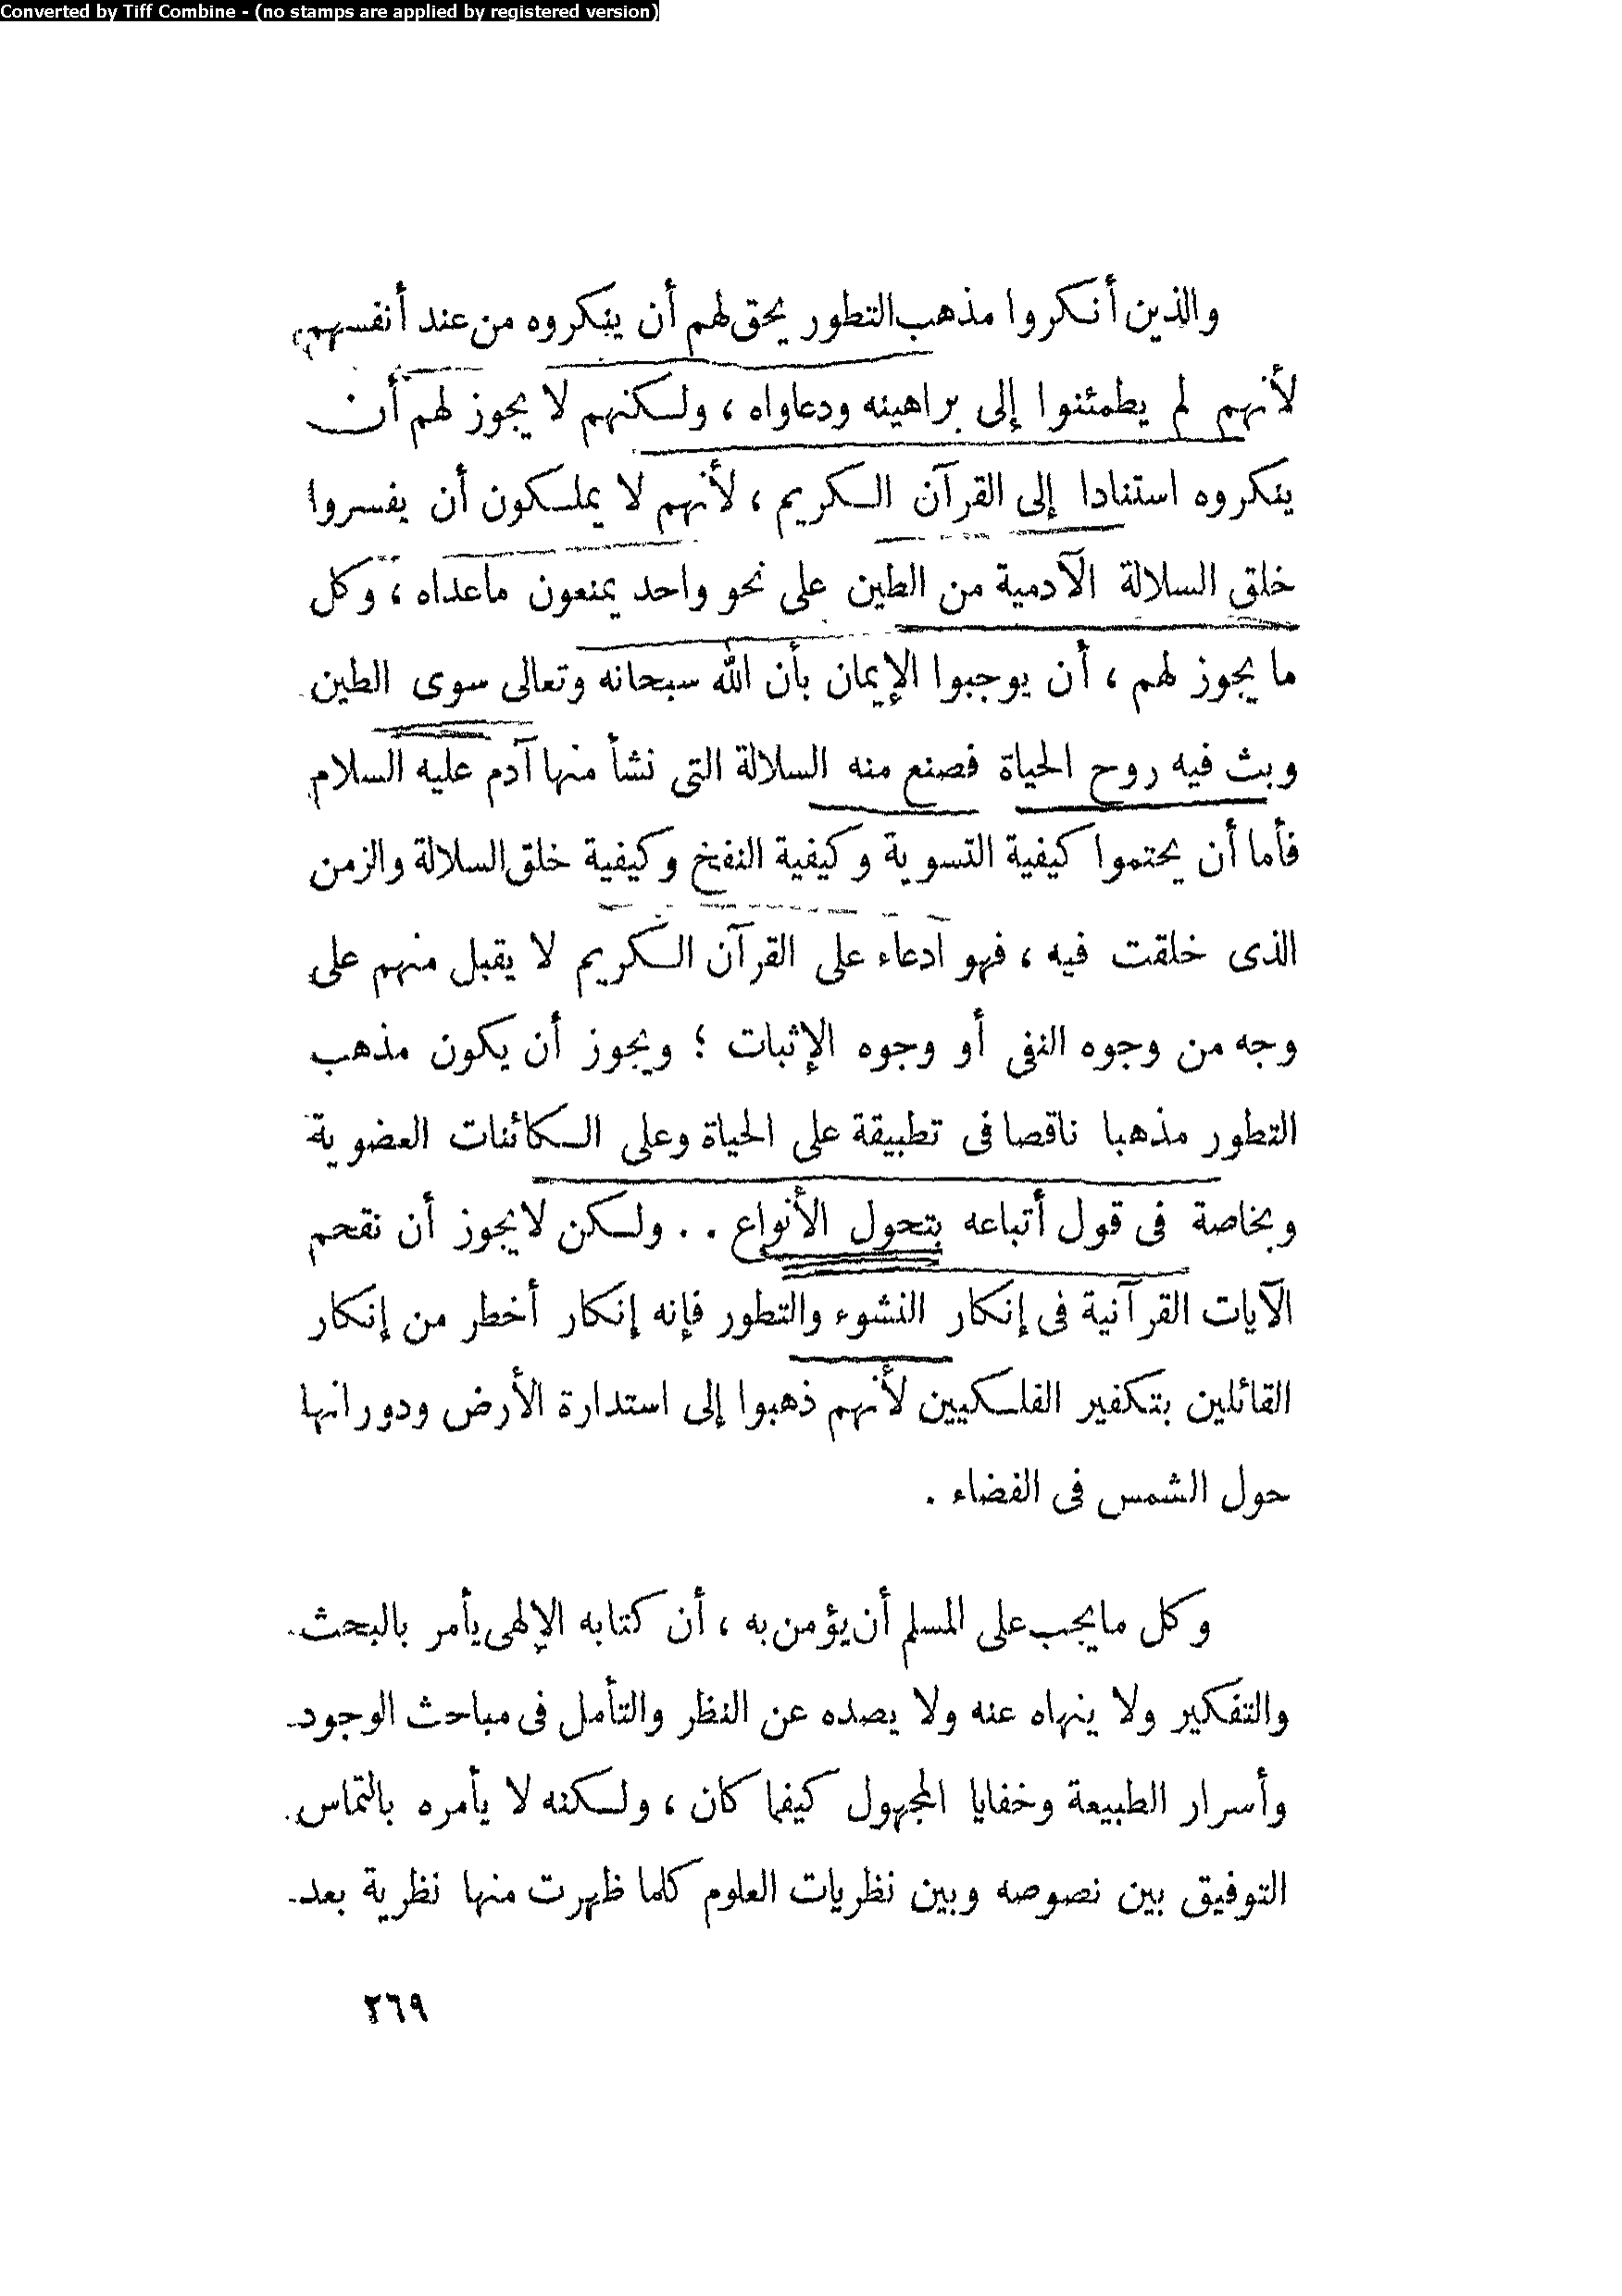 Converted by Tiff Combine - (no stamps are applied by registered version)
والذين أنكروا مذهب التطور يحق لهم أن ينكروه من عند أنفسهم،
لأنهم لم يطمئنوا إلى براهينه ودعاواه ، ولكنهم لا يجوز لهم أن
ينكروه استنادا إلى القرآن الكريم ، لأنهم لا يملكون أن يفسروا
خلق السلالة الآدمية من الطين على نحو واحد يمنعون ماعداه ، وكل
ما يجوز لهم ، أن يوجبوا الإيمان بأن الله سبحانه وتعالى سوى الطين
وبث فيه روح الحياة فصنع منه السلالة التى نشأ منها آدم عليه السلام
فأما أن يحتموا كيفية التسوية وكيفية النفخ وكيفية خلق السلالة والزمن
الذى خلقت فيه ، فهو ادعاء على القرآن الكريم لا يقبل منهم على
وجه من وجوه النفى أو وجوه الإثبات ؛ ويجوز أن يكون مذهب
التطور مذهبا ناقصا فى تطبيقة على الحياة وعلى الكائنات العضوية
وبخاصة فى قول أتباعه بتحول الأنواع . . ولكن لايجوز أن نقحم
الآيات القرآنية فى إنكار النشوء والتطور فإنه إنكار أخطر من إنكار
القائلين بتكفير الفلكيين لأنهم ذهبوا إلى استدارة الأرض ودورانها
حول الشمس فى الفضاء .
وكل مايجب على المسلم أن يؤمن به ، أن كتابه الإلهى يأمر بالبحث
والتفكير ولا ينهاه عنه ولا يصده عن النظر والتأمل فى مباحث الوجود
وأسرار الطبيعة وخفايا المجهول كيفما كان ، ولكنه لا يأمره بالتماس
التوفيق بين نصوصه وبين نظريات العلوم كلما ظهرت منها نظرية بعد
٢٦٩